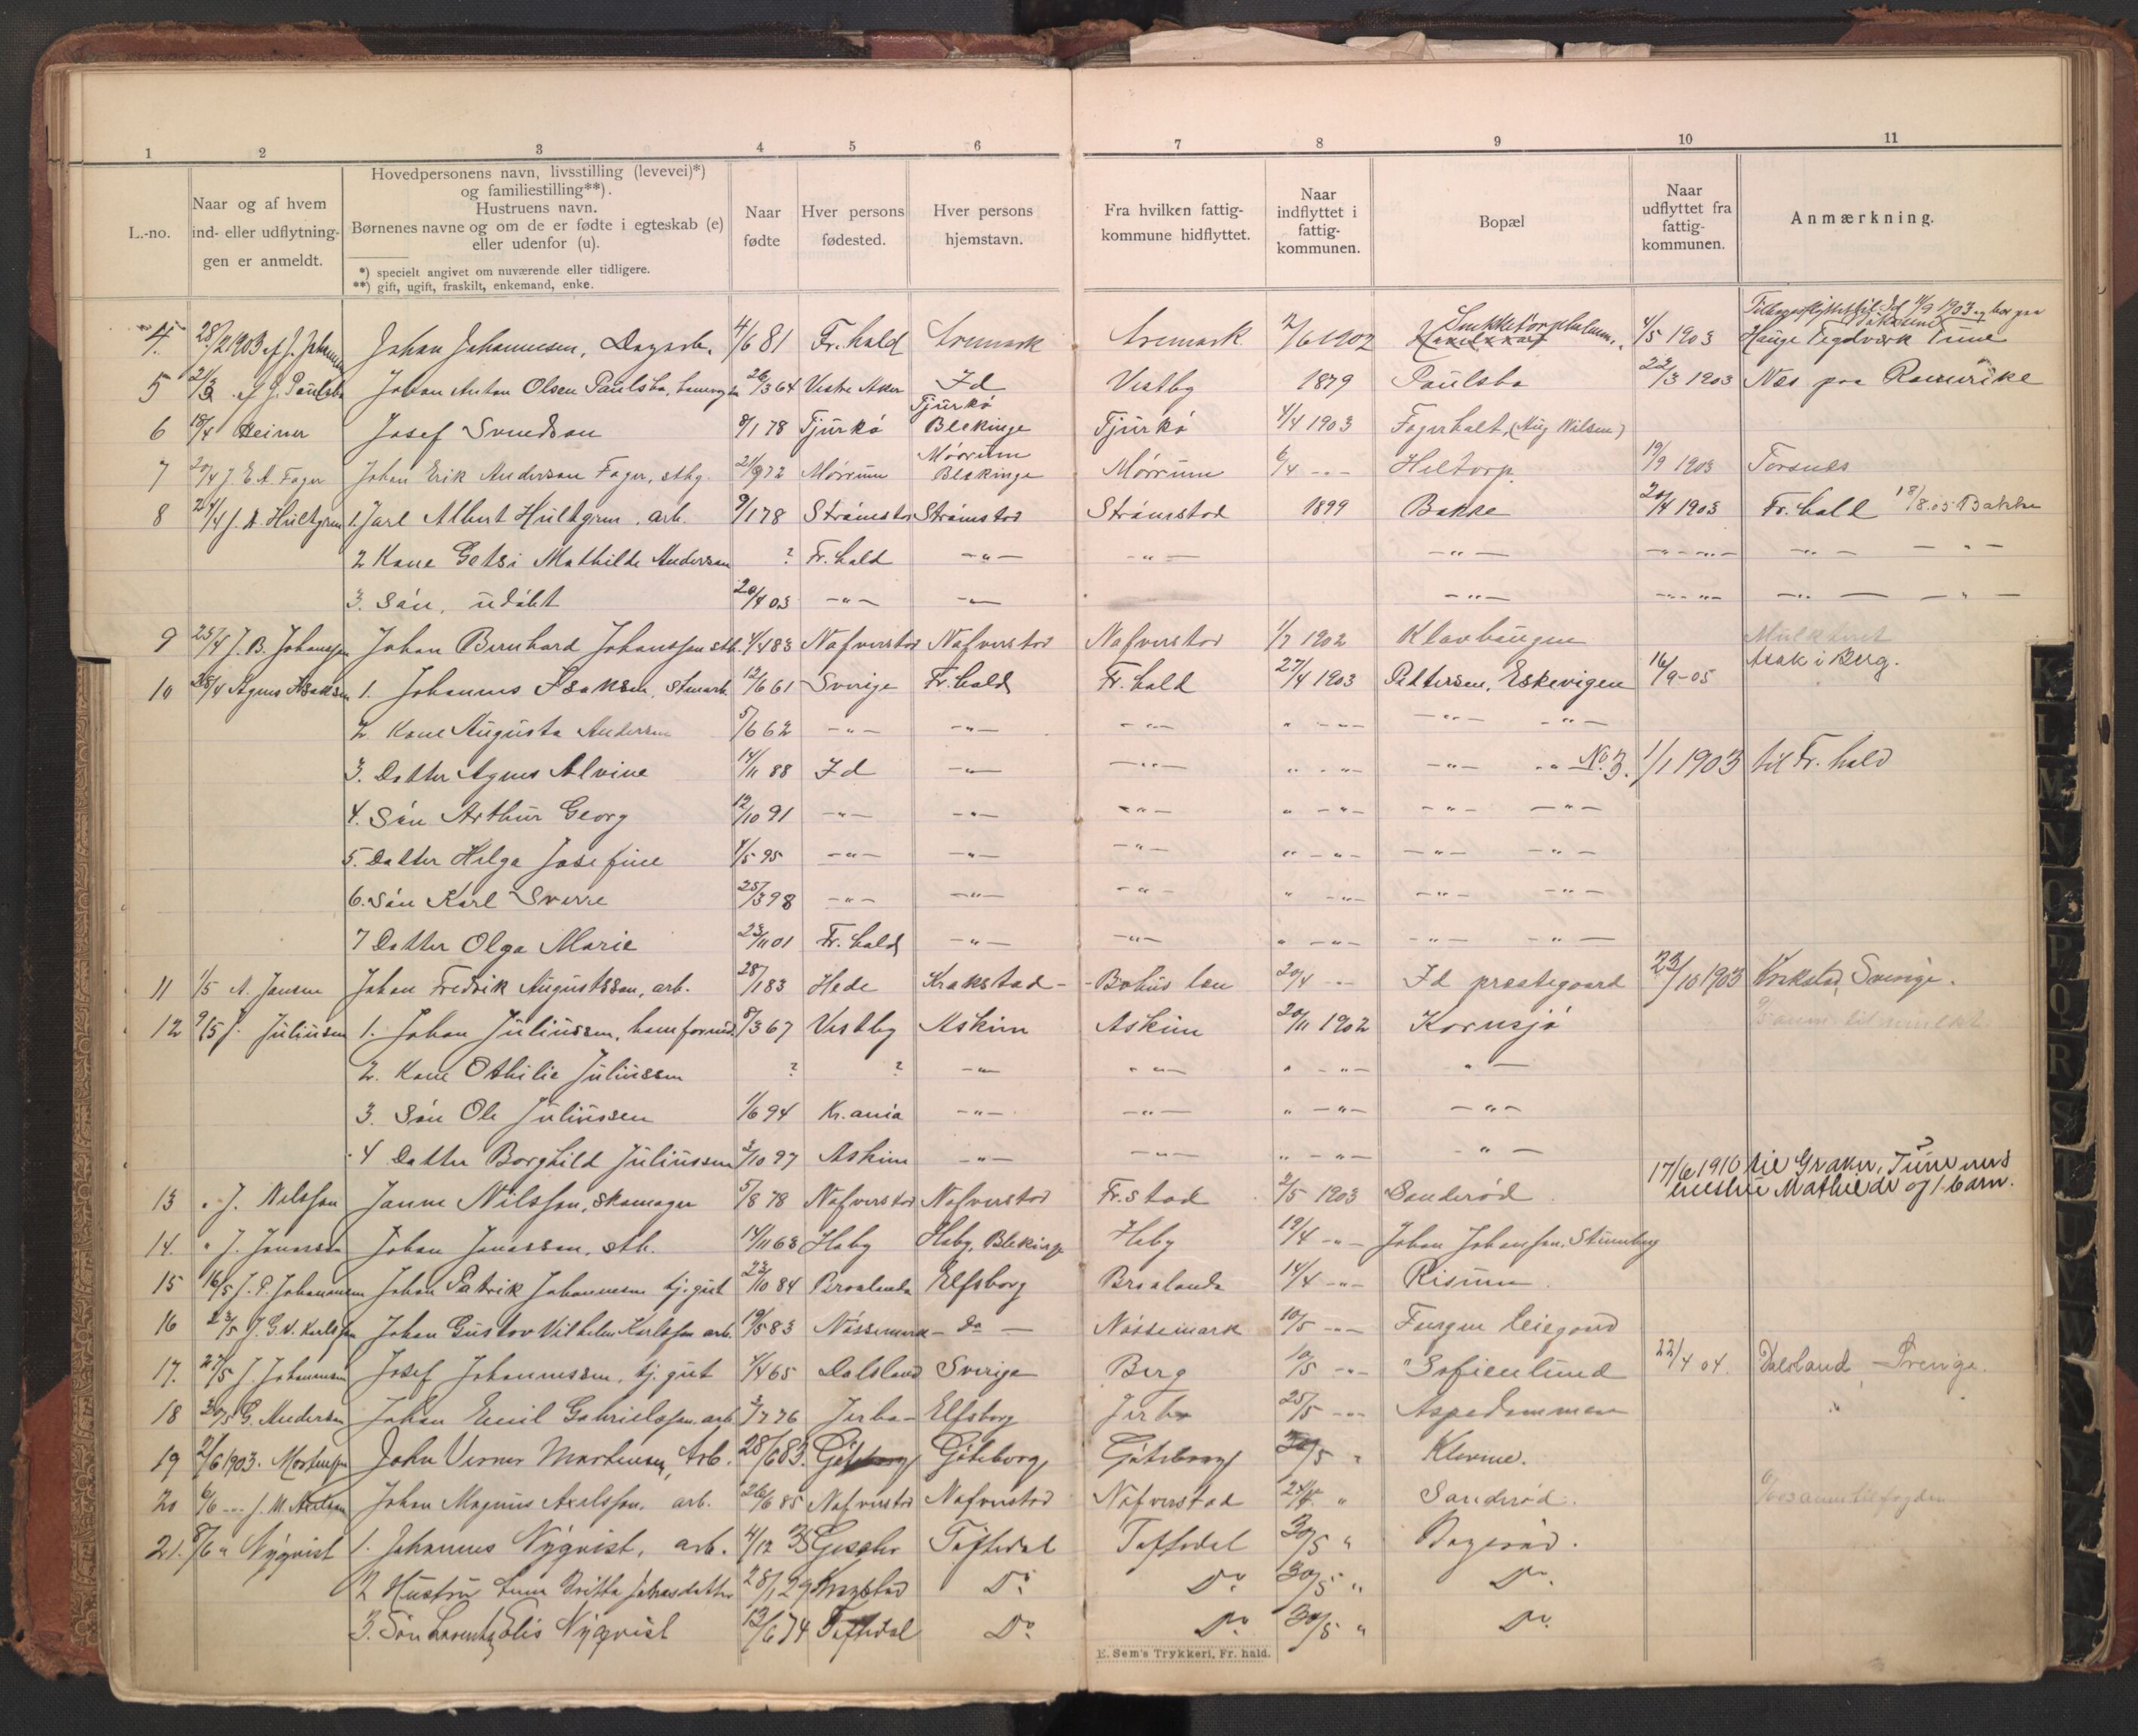 1 2 3 4 5 6 7 8 9 10 11
L.-no.
Naar og af hvem
ind- eller udflytnin-
gen er anmeldt.
Hovedpersonens navn, livsstilling (levevei)*)
og familiestilling**).
Hustruens navn.
Børnenes navne og om de er fødte i egteskab (e)
eller udenfor (u).
*) specielt angivet om nuværende eller tidligere.
**) gift, ugift, fraskilt, enkemand, enke.
Naar
fødte
Hver persons
fødested.
Hver persons
hjemstavn.
Fra hvilken fattig-
kommune hidflyttet.
Naar
indflyttet i
fattig-
kommunen.
Bopæl
Naar
udflyttet fra
fattig-
kommunen.
Anmærkning.
4. 28/2 1903 af J. Johannesen Johan Johannesen, Dagarb. 4/6 81 Fr.hald Aremark Aremark 2/6 1902 4/5 1903 Hauge Teglværk Tune
5 21/3 af J. Paulsbo Johan Anton Olsen Paulsbo 26/3 64 Vestre Aker Id Vestby 1879 Paulsbo 22/3 1903 Næs paa Romerike
6 18/4 Heiner Josef Svendson 8/1 78 Tjurkö Tjurkö Blekinge Tjurkö 4/4 1903 Fagerholt, (Aug Nilsen)
7 20/4 J. E. A. Fager Johan Erik Anderson Fager, sthg. 21/9 72 Mörrum Mörrum Blekinge Mörrum 6/4 -"- Heltorp. 19/9 1903 Torsnes
8 24/4 J. A. Hultgren 1. Jarl Albert Hultgren, arb. 9/1 78 Strömstad Strömstad Strömstad 1899 Bakke 20/4 1903 Fr.hald 18/8.05 Bakke
2 Kone Getsi Mathilde Anderson ? Fr.hald -"- -"- -"- -"- -"- -"- -"-
3. Søn, udöbt 20/4 03 -"- -"- -"- -"- -"- -"-
9 25/4 J. B. Johansson Johan Bernhard Johansson sth. 4/4 83 Nafverstad Nafverstad Nafverstad 1/7 1902 Klavhaugen Mulkteret
10 28/4 Agnes Isaksen 1. Johannes Isaksen, stenarb. 12/6 61 Sverige Fr.hald Fr.hald 27/4 1903 Pettersen, Eskevigen 16/9-05 Asak i Berg.
2. Kone Augusta Andersen 5/6 62 -"- -"- -"- " -"- -"- -"-
3. Datter Agnes Alvine 14/11 88 Id -"- -"- " -"- -"- -"- No. 3. 1/1 1903 til Fr.hald
4. Søn Arthur Georg 12/10 91 -"- -"- -"- " -"- -"- -"-
5. Datter Helga Josefine 4/5 95 -"- -"- -"- " -"- -"- -"-
6. Søn Karl Sverre 25/3 98 -"- -"- -"- " -"- -"- -"-
7 Datter Olga Marie 23/11 01 Fr.hald -"- -"- " -"- -"- -"-
11 1/5 A. Jansen Johan Fredrik Augustsson, arb. 28/1 83 Hede Krokstad - - Bohus len 20/4 -"- Id prestegaard 23/10 1903 Krokstad, Sverige.
12 9/5 J. Juliussen 1. Johan Juliussen, 8/3 67 Vestby Askim Askim 20/11 1902 Kornsjö
2. Kone Othilie Juliussen ? ? -"- -"- " -"- " -
3. Søn Ole Juliussen 1/6 94 Kr.ania -"- -"- " -"- -"-
4 Datter Borghild Juliussen 3/10 97 Askim -"- -"- " -"- -"-
17/6 1910 til Graker, Tune
hustru Mathilde og 1 barn.
13 " J. Nilsson Janne Nilsson, skomager 5/8 78 Nafverstad Nafverstad Fr.stad 2/5 1903 Sanderød
14. " J. Jonassen Johan Jonassen, sth. 14/11 63 Haby Haby, Blekinge Haby 19/4 -"- Johan Johansson,
15 16/5 J. P. Johannesen Johan Patrik Johannesen tj.gut 23/10 84 Brolanda Elfsborg Brolanda 14/4 -"- Risum.
16 23/5 J. G. V. Karlsson Johan Gustav Vilhelm Karlsson arb. 19/5 83 Nössemark - Do - Nössemark 10/5 -"-
17. 27/5 J. Johannesen Josef Johannessen, tj. gut 4/4 65 Dalsland Sverige Berg 10/5 -"- Sofienlund 22/4 04. Dalsland, Sverige.
18 30/5 G. Andersen Johan Emil Gabrielsson. arb. 3/7 76 Jerbo - Elfsborg Jerbo 25/5 -"- Aspedammen
19 2/6 1903. Mortensen John Verner Martinsen, Arb. 28/6 83. Göteborg Göteborg Göteborg 30/5 " Klevine.
20 6/6 -"- J. M. Axelsson Johan Magnus Axelsson, arb. 26/6 85 Nafverstad Nafverstad Nafverstad 24/5 " Sanderød.
21. 8/6 " Nyqvist 1. Johannes Nyqvist, arb. 4/12 35 Töftedal Töftedal 30/5 " Bøgerød.
2 Hustru Britta Johansdatter 28/1 29 Krogstad Do. Do. 30/5 " Do.
3. Søn Elis Nyqvist 13/6 74 Töftedal Do. Do. 30/5 " Do.
E. Sem's Trykkeri, Fr. hald.
K
L
M
N
O
P
Q
R
S
T
U
V
W